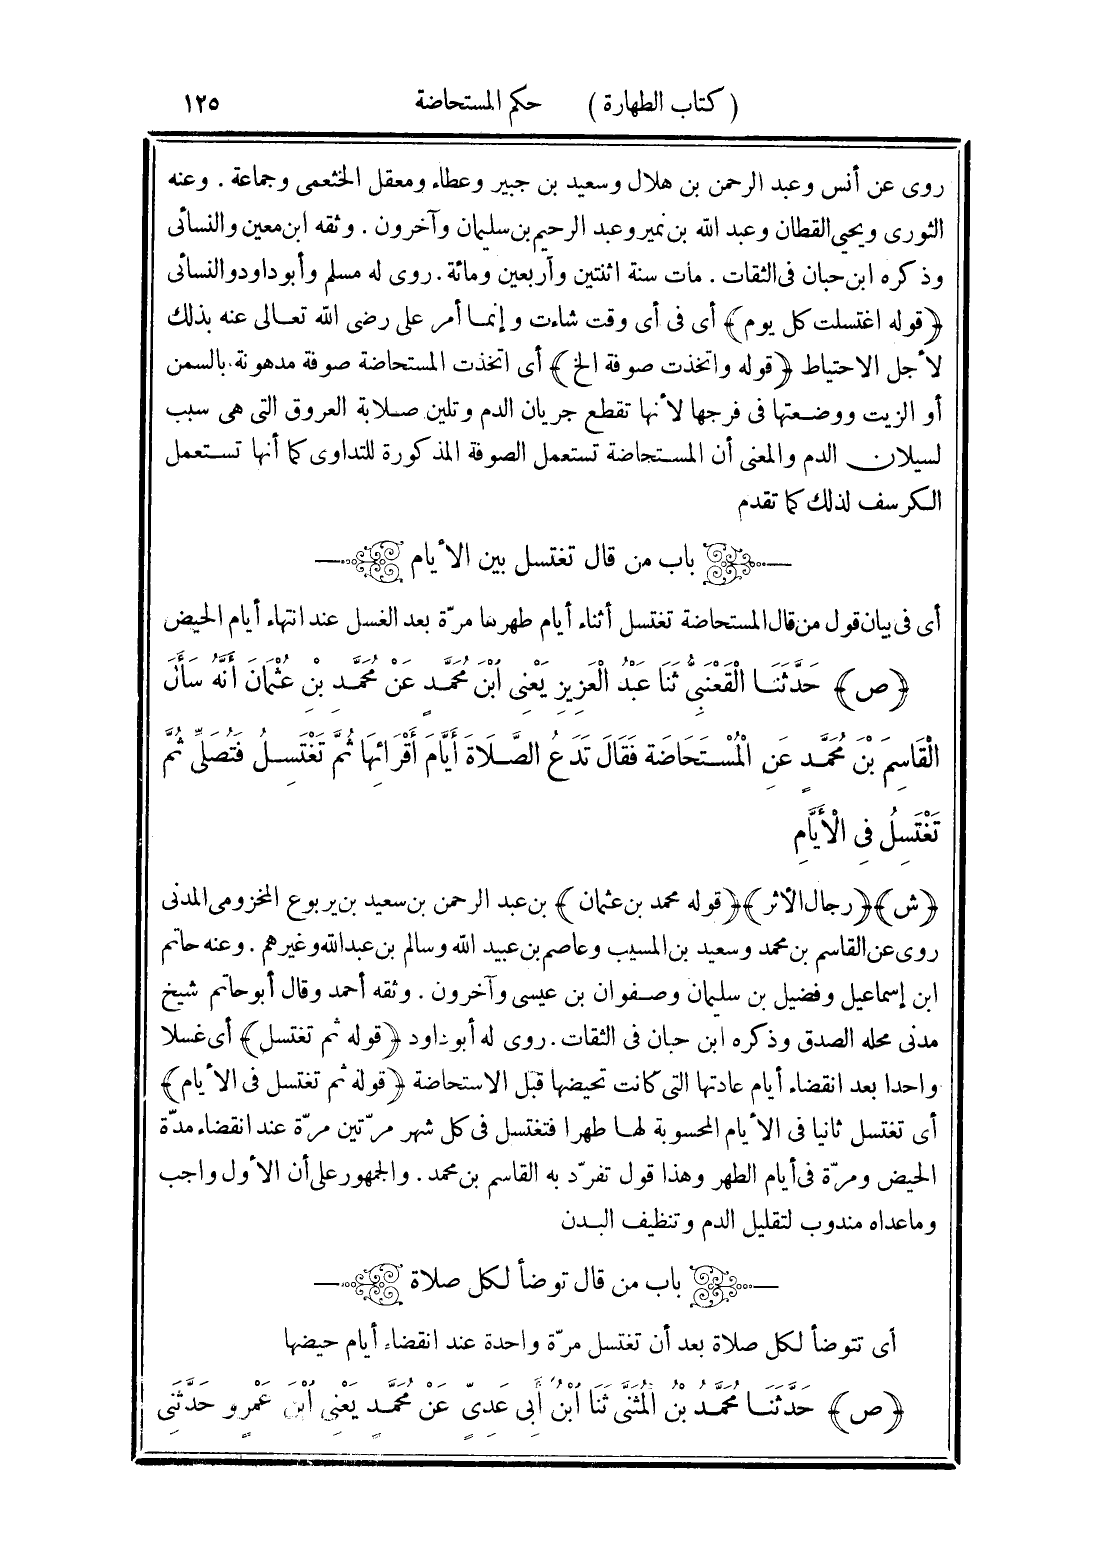 ( كتاب الطهارة ) حكم المستحاضة ١٢٥
روى عن أنس وعبد الرحمن بن هلال وسعيد بن جبير وعطاء ومعقل الخثعمى وجماعة . وعنه
الثورى ويحيى القطان وعبد الله بن نمير وعبد الرحيم بن سليمان وآخرون . وثقه ابن معين والنسائى
وذكره ابن حبان فى الثقات . مات سنة اثنتين وأربعين ومائة . روى له مسلم وأبو داود والنسائى
﴿قوله اغتسلت كل يوم﴾ أى فى أى وقت شاءت وإنما أمر على رضى الله تعالى عنه بذلك
لأجل الاحتياط ﴿قوله واتخذت صوفة الخ﴾ أى اتخذت المستحاضة صوفة مدهونة بالسمن
أو الزيت ووضعتها فى فرجها لأنها تقطع جريان الدم وتلين صلابة العروق التى هى سبب
لسيلان الدم والمعنى أن المستحاضة تستعمل الصوفة المذكورة للتداوى كما أنها تستعمل
الكرسف لذلك كما تقدم
باب من قال تغتسل بين الأيام
أى فى بيان قول من قال المستحاضة تغتسل أثناء أيام طهرها مرّة بعد الغسل عند انتهاء أيام الحيض
﴿ص﴾ حَدَّثَنَا الْقَعْنَبِيُّ ثَنَا عَبْدُ الْعَزِيزِ يَعْنِى ابْنَ مُحَمَّدٍ عَنْ مُحَمَّدِ بْنِ عُثْمَانَ أَنَّهُ سَأَلَ
الْقَاسِمَ بْنَ مُحَمَّدٍ عَنِ الْمُسْتَحَاضَةِ فَقَالَ تَدَعُ الصَّلَاةَ أَيَّامَ أَقْرَائِهَا ثُمَّ تَغْتَسِلُ فَتُصَلِّى ثُمَّ
تَغْتَسِلُ فِى الْأَيَّامِ
﴿ش﴾ ﴿رجال الأثر﴾ ﴿قوله محمد بن عثمان﴾ بن عبد الرحمن بن سعيد بن يربوع المخزومى المدنى
روى عن القاسم بن محمد وسعيد بن المسيب وعاصم بن عبيد الله وسالم بن عبد الله وغيرهم . وعنه حاتم
ابن إسماعيل وفضيل بن سليمان وصفوان بن عيسى وآخرون . وثقه أحمد وقال أبو حاتم شيخ
مدنى محله الصدق وذكره ابن حبان فى الثقات . روى له أبو داود ﴿قوله ثم تغتسل﴾ أى غسلا
واحدا بعد انقضاء أيام عادتها التى كانت تحيضها قبل الاستحاضة ﴿قوله ثم تغتسل فى الأيام﴾
أى تغتسل ثانيا فى الأيام المحسوبة لها طهرا فتغتسل فى كل شهر مرّتين مرّة عند انقضاء مدّة
الحيض ومرّة فى أيام الطهر وهذا قول تفرّد به القاسم بن محمد . والجمهور على أن الأول واجب
وماعداه مندوب لتقليل الدم وتنظيف البدن
باب من قال توضأ لكل صلاة
أى تتوضأ لكل صلاة بعد أن تغتسل مرّة واحدة عند انقضاء أيام حيضها
﴿ص﴾ حَدَّثَنَا مُحَمَّدُ بْنُ الْمُثَنَّى ثَنَا ابْنُ أَبِى عَدِىٍّ عَنْ مُحَمَّدٍ يَعْنِى ابْنَ عَمْرٍو حَدَّثَنِى